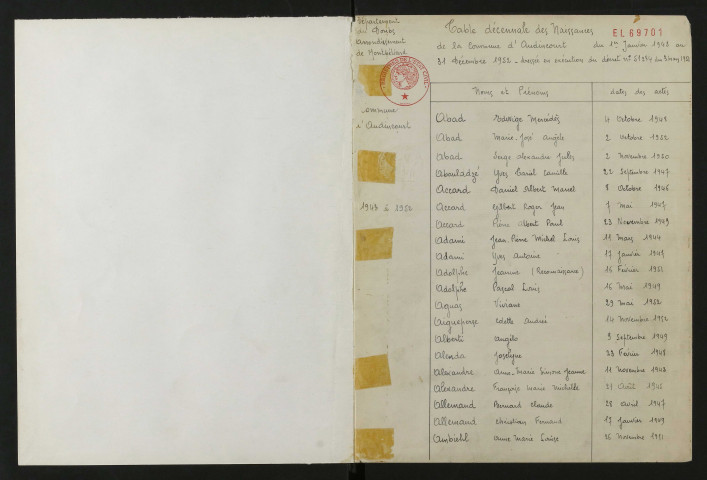 Département
du Doubs
arrondissement
de Montbéliard
commune
d'Audincourt
1943 à 1952
Table décennale des Naissances
EL 69701
de la Commune d'Audincourt du 1er Janvier 1943 au
31 Décembre 1952 - dressée en exécution du décret n° du
Noms et Prénoms dates des actes
Abad Edwige Mercédès 4 Octobre
Abad Marie-José Angèle 2 Octobre 1952
Abad Serge Alexandre Jules 2 Novembre 1950
Abouladzé Yves Camille 22 Septembre 1947
Accard Daniel Albert Marcel 8 Octobre 1946
Accard Gilbert Roger Jean 7 Mai
Accard Pierre Albert Paul 23 Novembre 1949
Adami Jean-Pierre Michel Louis 11 Mars 1944
Adami Yves Antoine 17 Janvier
Adolphe Jeanne (Reconnaissance) 16 Février 1952
Adolphe Pascal Louis 16 Mai 1949
Aguas Viviane 29 Mai 1952
Aigueperse Odette Andrée 14 Novembre 1952
Alberti Angelo 3 Septembre 1949
Alenda Joselyne 28 Février 1948
Alexandre Anne-Marie Simone Jeanne 11 Novembre 1948
Alexandre Françoise Marie Michelle Août
Allemand Bernard Claude 28 Avril 1947
Allemand Christian Fernand 17 Janvier 1949
Ambiehl Anne Marie Louise 26 Novembre 1951